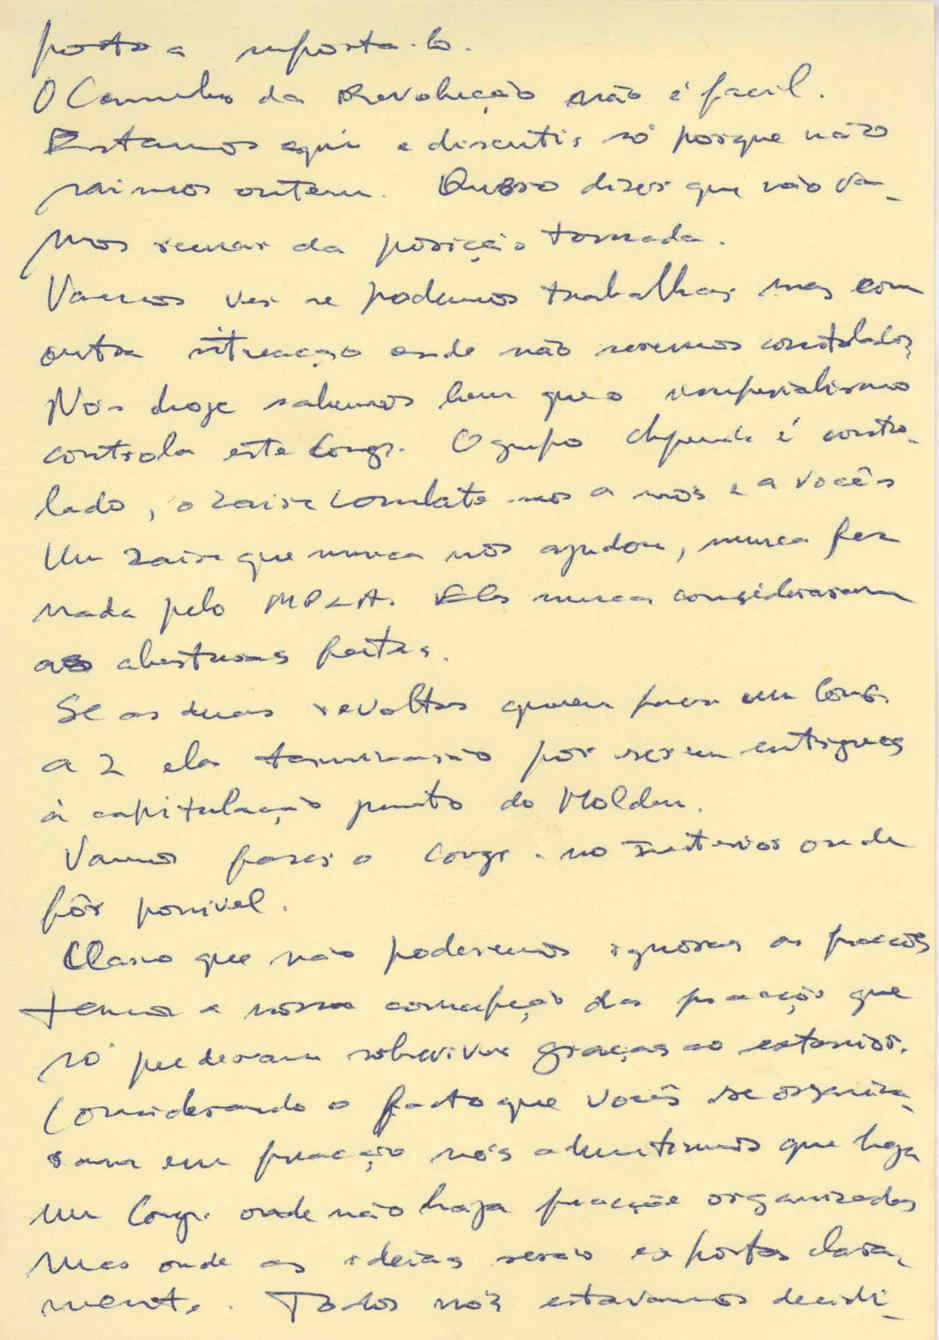 posto a suporta-lo.
O Caminho da Revolução não é facil.
Estamos aqui a discutir só porque não
saimos ontem. Quero dizer que não va-
mos recuar da posição tomada.
Vamos ver se podemos trabalhar mas com
outra situação onde não seremos controlados
Nós hoje sabemos bem que o imperialismo
controla este Congr. O grupo Chipenda é contro-
lado, o Zaire combate-nos a nós e a vocês
Um Zaire que nunca nos ajudou, nunca fez
nada pelo MPLA. Eles nunca consideraram
as aberturas feitas.
Se as duas revoltas querem fazer um Congr.
a 2 elas terminarão por serem entregues
à capitulação junto do Holden.
Vamos fazer o Congr. no Interior onde
fôr possivel.
Claro que não poderemos ignorar as fracções
temos a nossa concepção das fracções que
só puderam sobreviver graças ao exterior.
Considerando o facto que vocês se organiza-
ram em fracção nós admitimos que haja
um Congr. onde não haja fracções organizadas
mas onde as ideias serão expostas clara-
mente. Todos nós estavamos decidi-